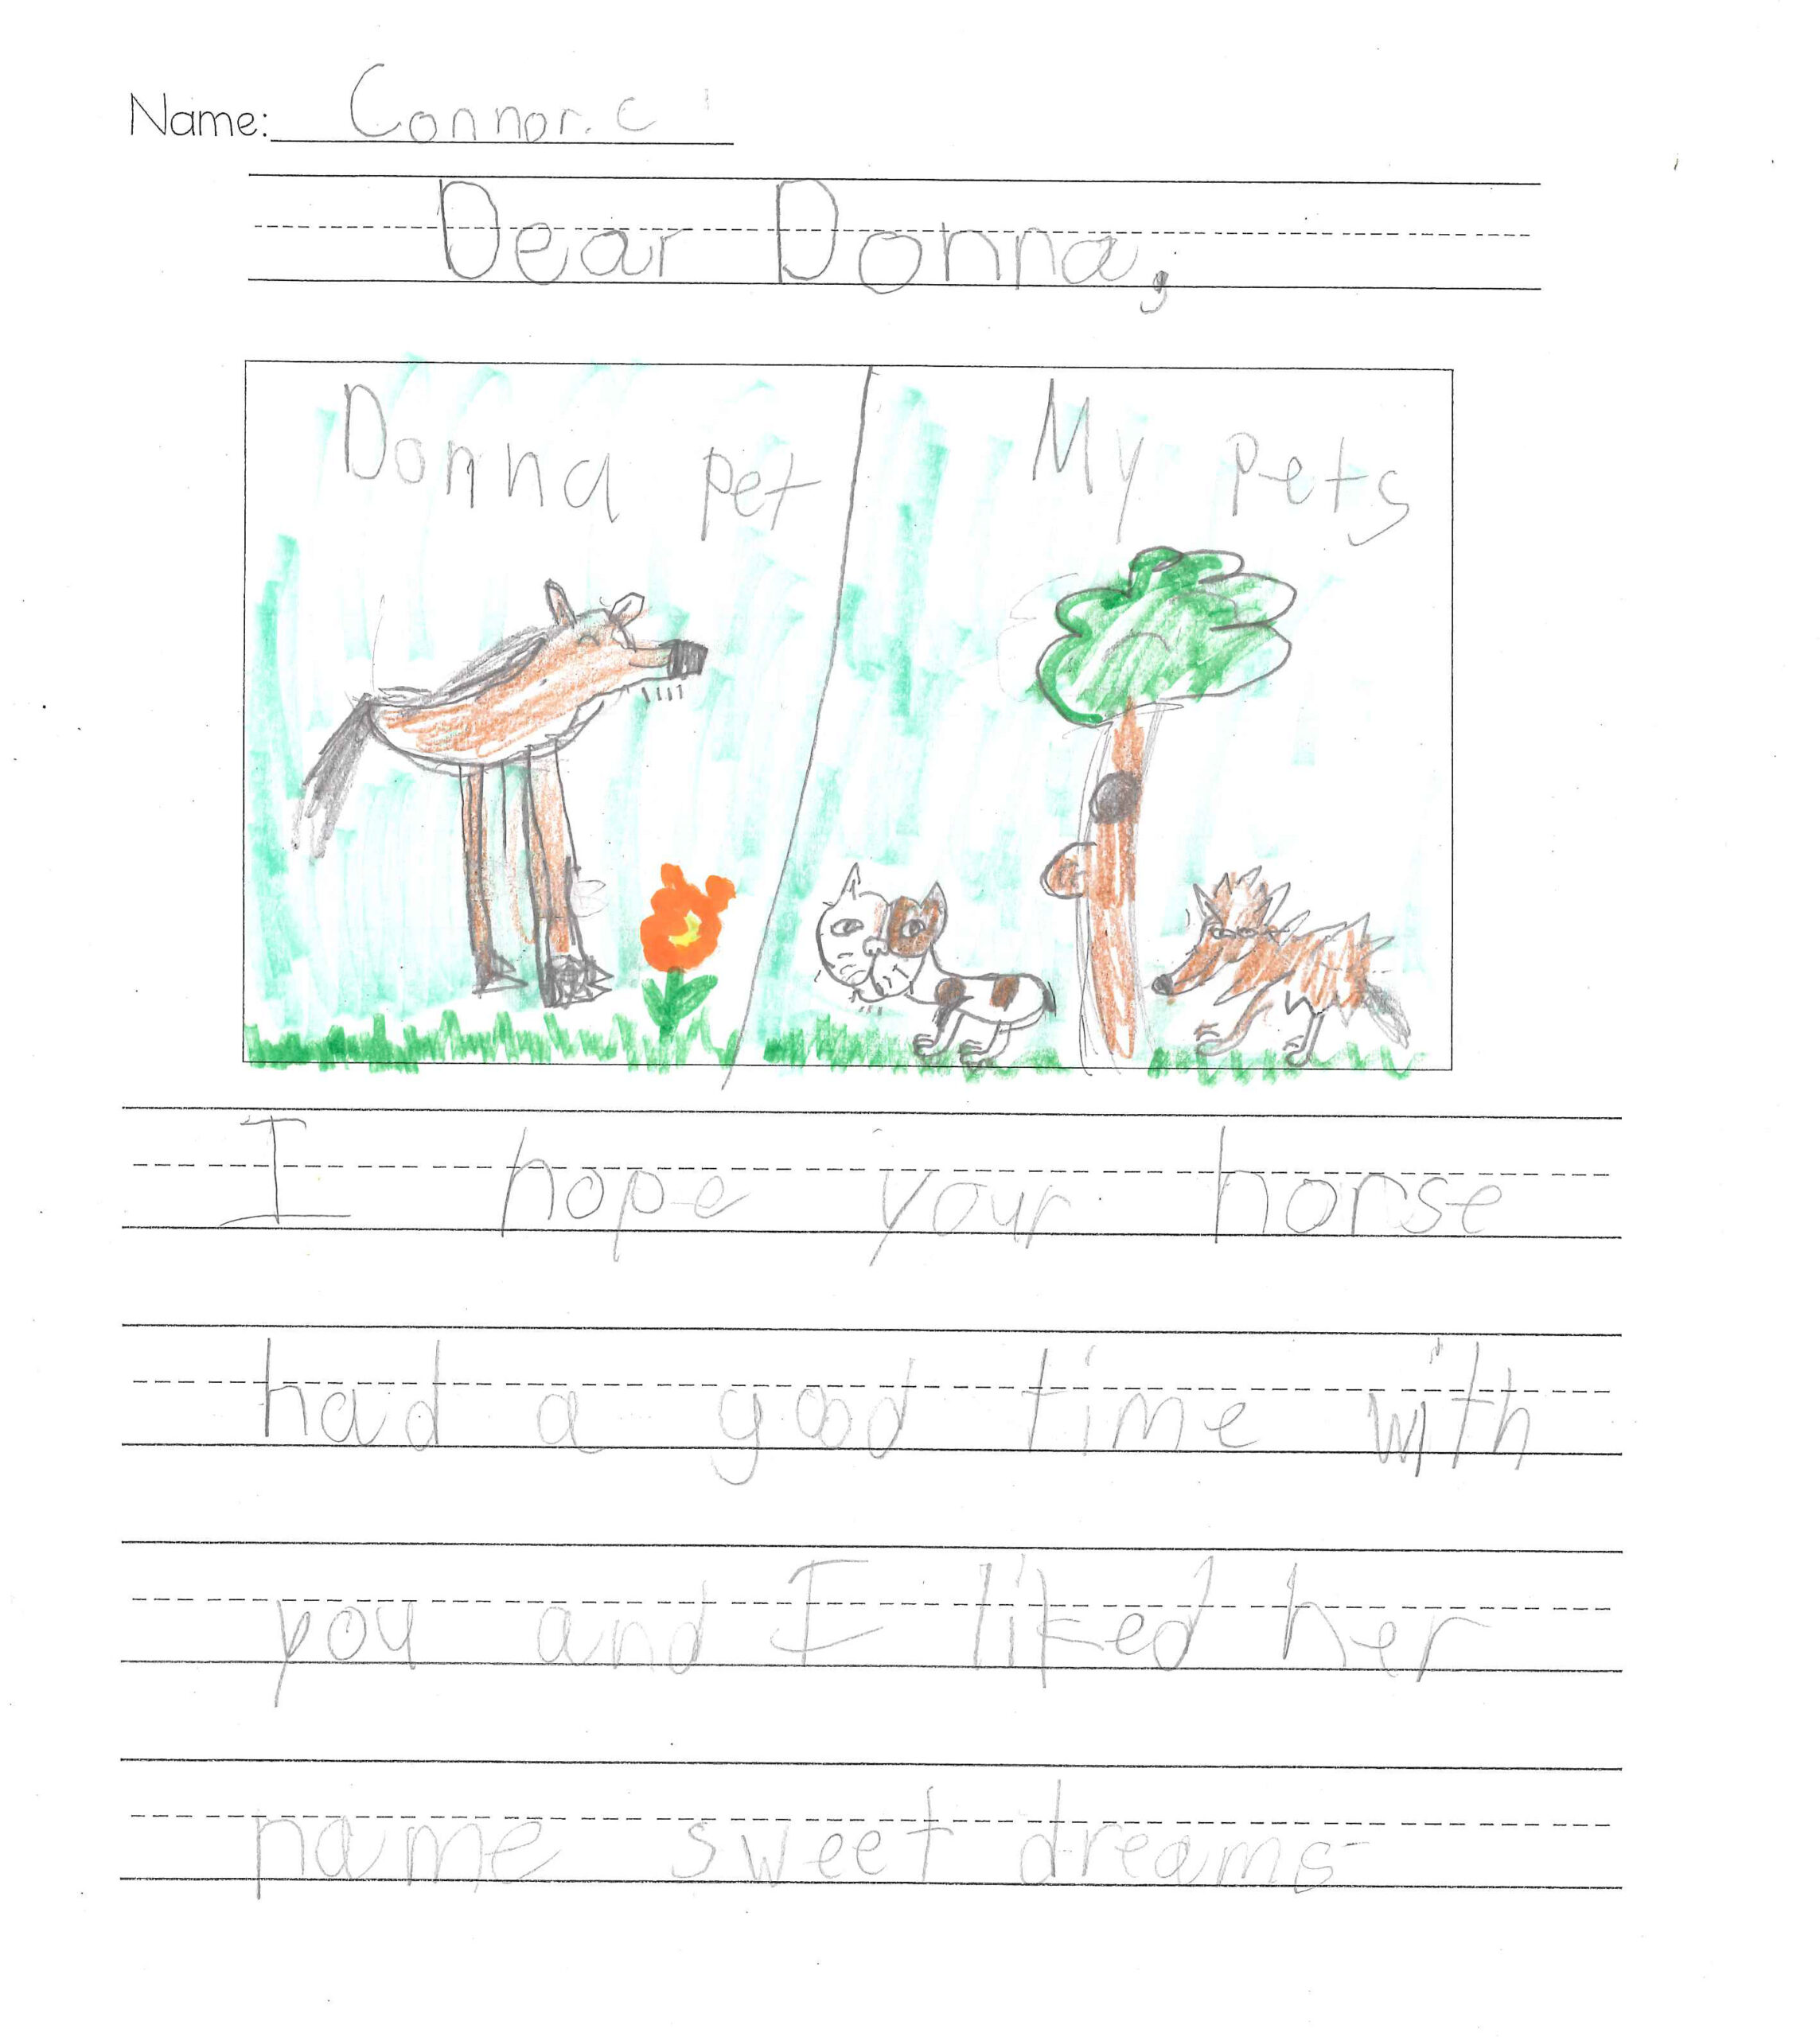 Name: Connor. C
Dear Donna,
Donna pet
My pets
I hope your horse
had a good time with
you and I liked her
name sweet dreams